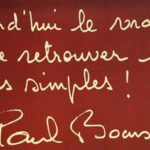 d'hui le vra
e retrouver
s simples !
Paul Bocus